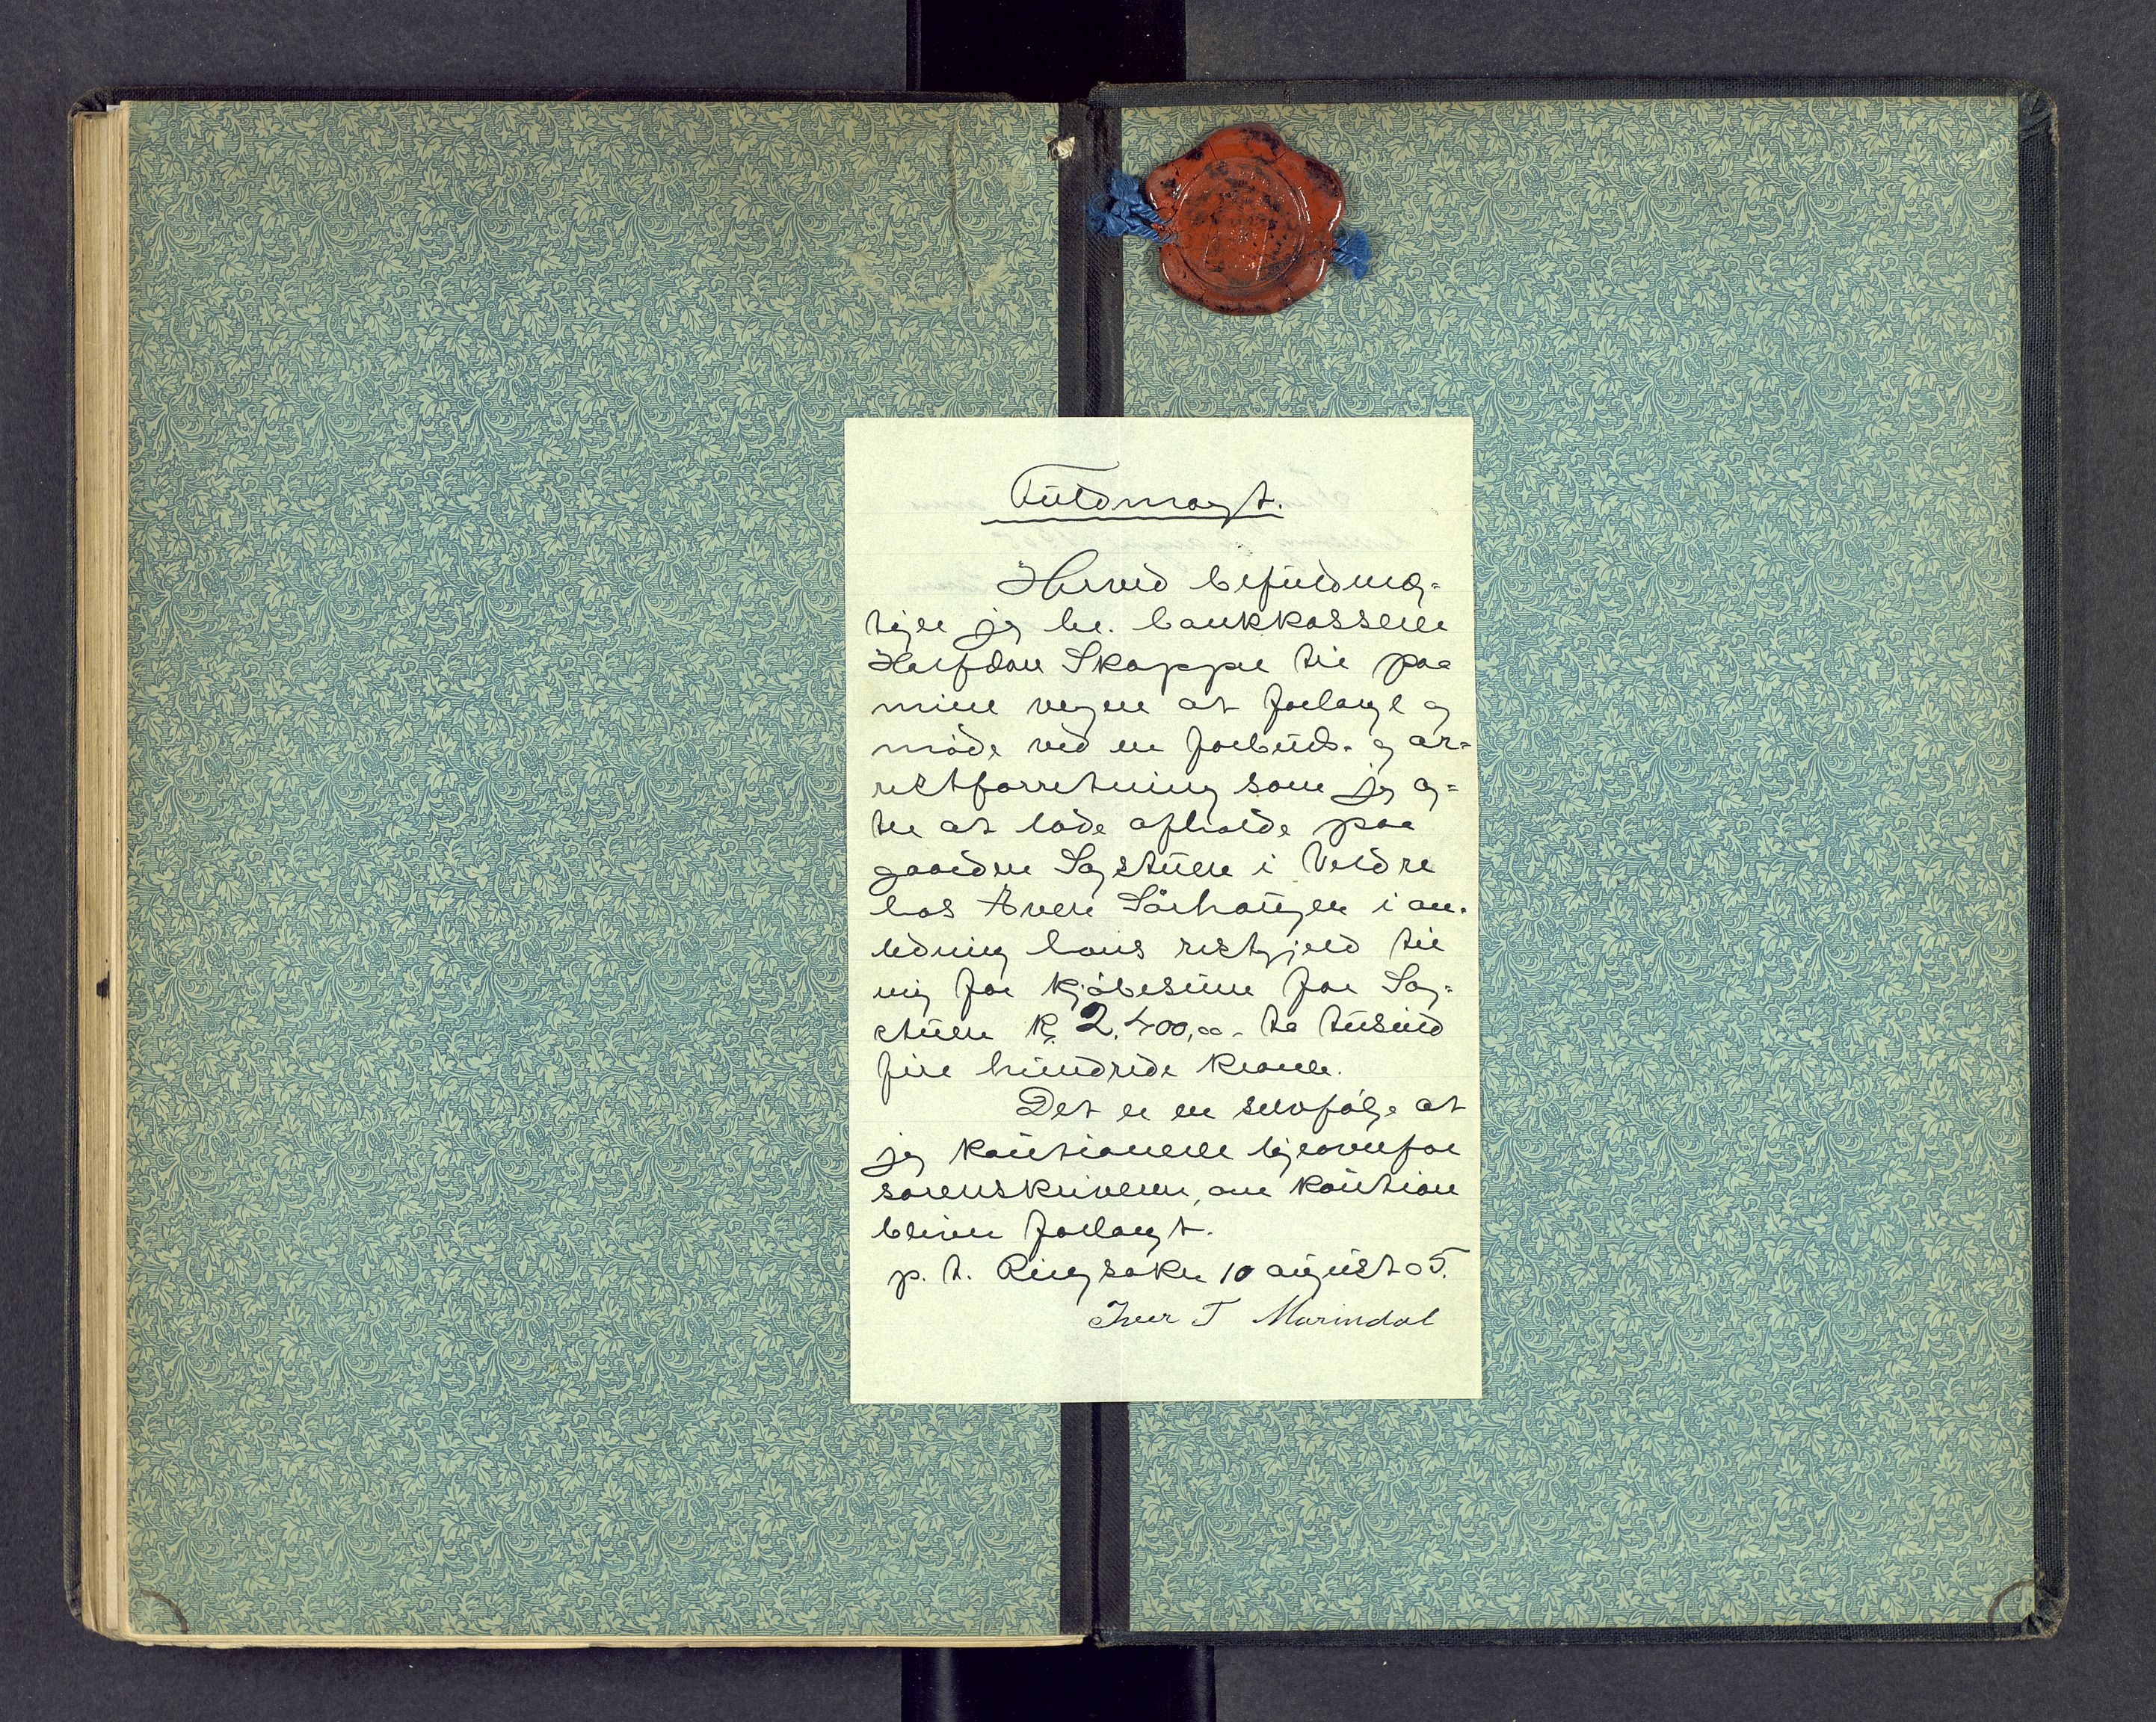 Fuldmagt.
Herved befuldmæg=
tiger jeg hr. bankkasserer
Halfdan Skappel til paa
mine vegne at forlange og
møde ved en forbuds- og ar=
restforretning som jeg ag=
ter at lade afholde paa
gaarden Sagstuen i Veldre
hos Even Sörhaugen i an-
ledning hans restgjeld til
mig for kjøbesum for Sag=
stuen kr 2.400,00 - to tusind
fire hundrede kroner.
Det er en selvfølge at
jeg kautionerer ligeoverfor
sorenskriveren, om kaution
bliver forlangt.
p. t. Ringsaker 10 august 05.
Iver T Marindal